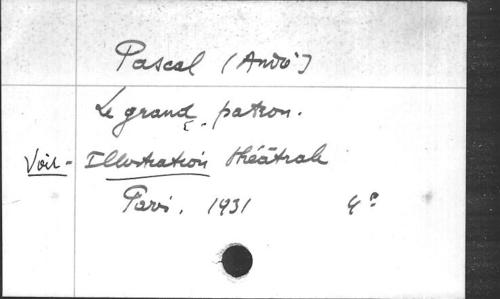 Pascal (André)
Le grand patron.
Voir - Illustration théâtrale
Paris. 1931 4°